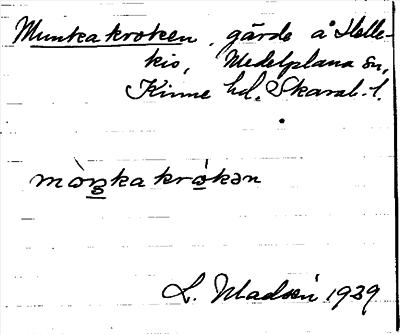 Munkakroken, gärde å Helle-
kis, Medelplana sn,
Kinne hd. Skarab. l.
mòŋkakrókən
L. Madsén 1939